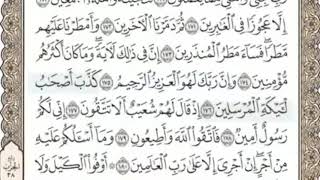 إِلَّا عَجُوزًا فِي ٱلْغَٰبِرِينَ ١٧١ ثُمَّ دَمَّرْنَا ٱلْأَخَرِينَ ١٧٢ وَأَمْطَرْنَا عَلَيْهِم
مَّطَرًا فَسَآءَ مَطَرُ ٱلْمُنذَرِينَ ١٧٣ إِنَّ فِي ذَٰلِكَ لَأَيَةً وَمَا كَانَ أَكْثَرُهُم
مُّؤْمِنِينَ ١٧٤ وَإِنَّ رَبَّكَ لَهُوَ ٱلْعَزِيزُ ٱلرَّحِيمُ ١٧٥ كَذَّبَ أَصْحَٰبُ
لْـَٔيْكَةِ ٱلْمُرْسَلِينَ ١٧٦ إِذْ قَالَ لَهُمْ شُعَيْبٌ أَلَا تَتَّقُونَ ١٧٧ إِنِّي لَكُمْ
رَسُولٌ أَمِينٌ ١٧٨ فَٱتَّقُوا۟ ٱللَّهَ وَأَطِيعُونِ ١٧٩ وَمَآ أَسْـَٔلُكُمْ عَلَيْهِ
مِنْ أَجْرٍ إِنْ أَجْرِيَ إِلَّا عَلَىٰ رَبِّ ٱلْعَٰلَمِينَ ١٨٠ أَوْفُوا۟ ٱلْكَيْلَ وَلَا